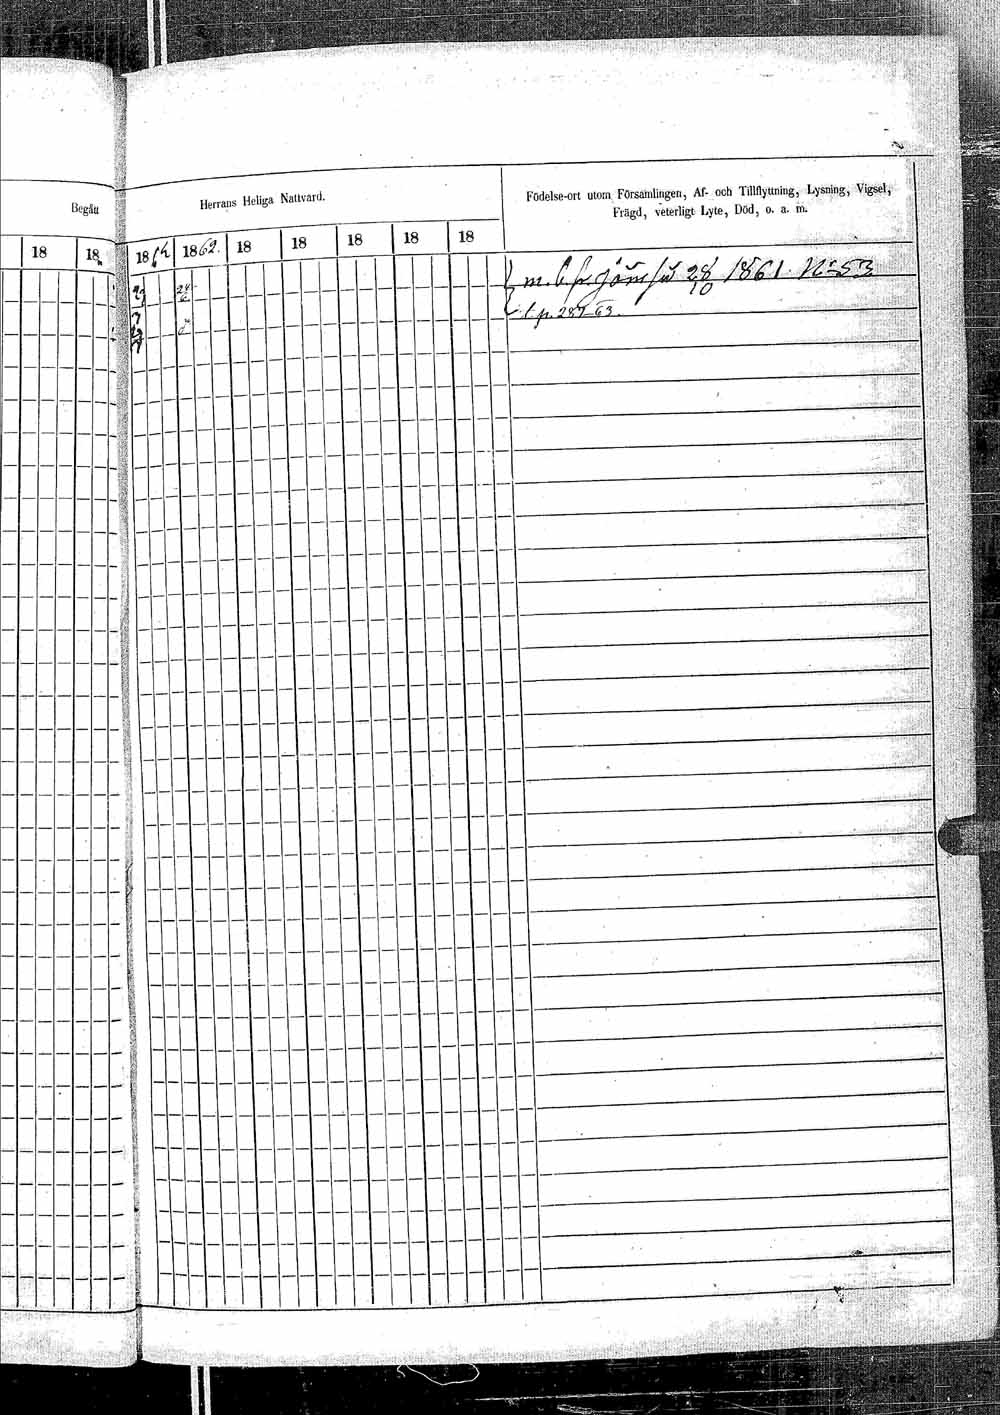 Begåu
Herrans Heliga Nattvard.
Födelse-ort utom Församlingen, Af- och Tillflyttning, Lysning, Vigsel,
Frägd, veterligt Lyte, Död, o. a. m.
18 18 18 1862. 18 18 18 18 18
m. b. fr. Jämsä 28/10 1861. No 53
24/6
t. p. 287. 63.